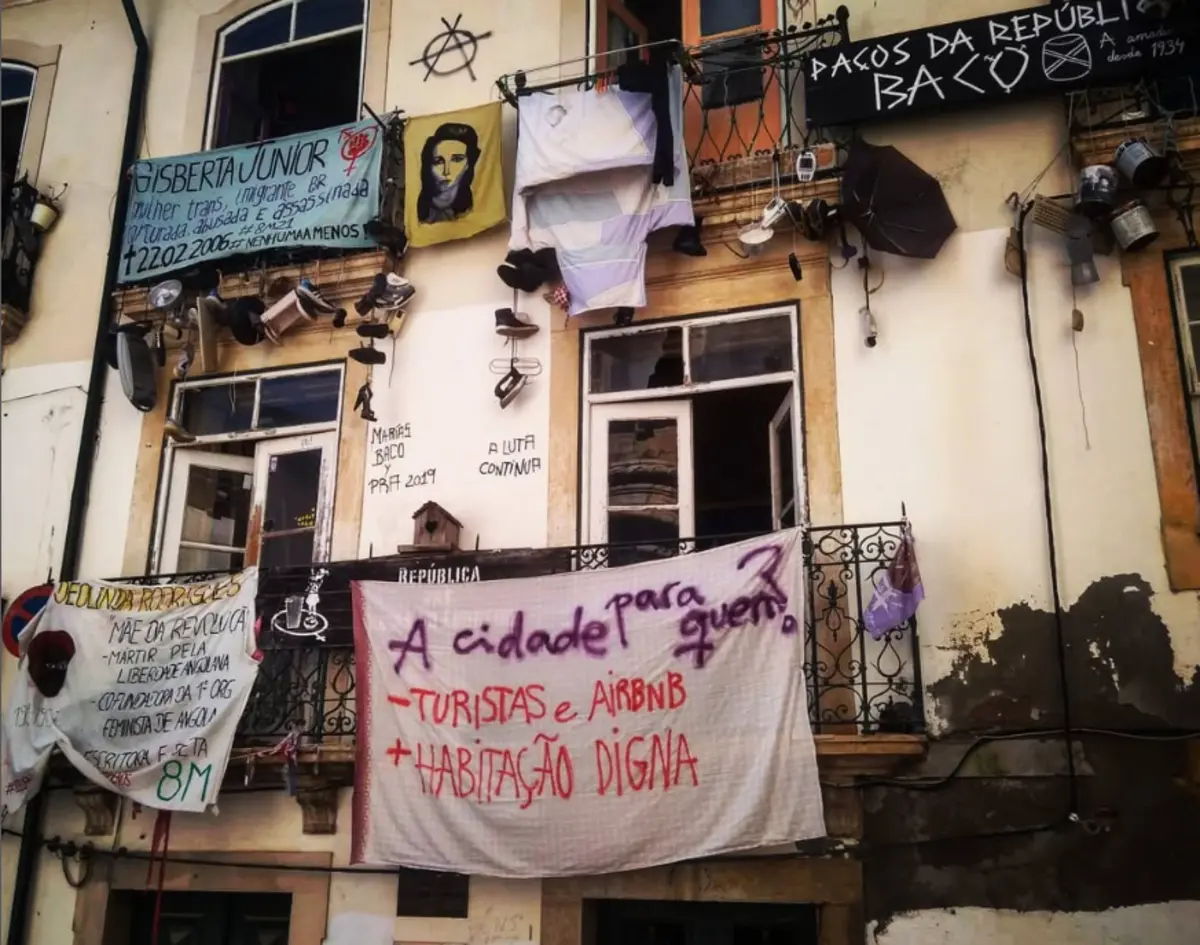 PAÇOS DA REPÚBLI
BACO
A amada
desde 1934
GISBERTA JUNIOR
mulher trans, imigrante BR
torturada, abusada E assassinada
#8M21
†22.02.2006 #NENHUMAAMENOS!
MARIAS
BACO
y
PRA 2019
A LUTA
CONTINUA
REPÚBLICA
DEOLINDA RODRIGUES
MÃE DA REVOLUÇÃ
-MÁRTIR PELA
LIBERDADE ANGOLANA
COFUNDADORA DA 1ª ORG
FEMINISTA DE ANGOLA
ESCRITORA E
8M
A cidade para
quem?
-TURISTAS e AIRBNB
+HABITAÇÃO DIGNA